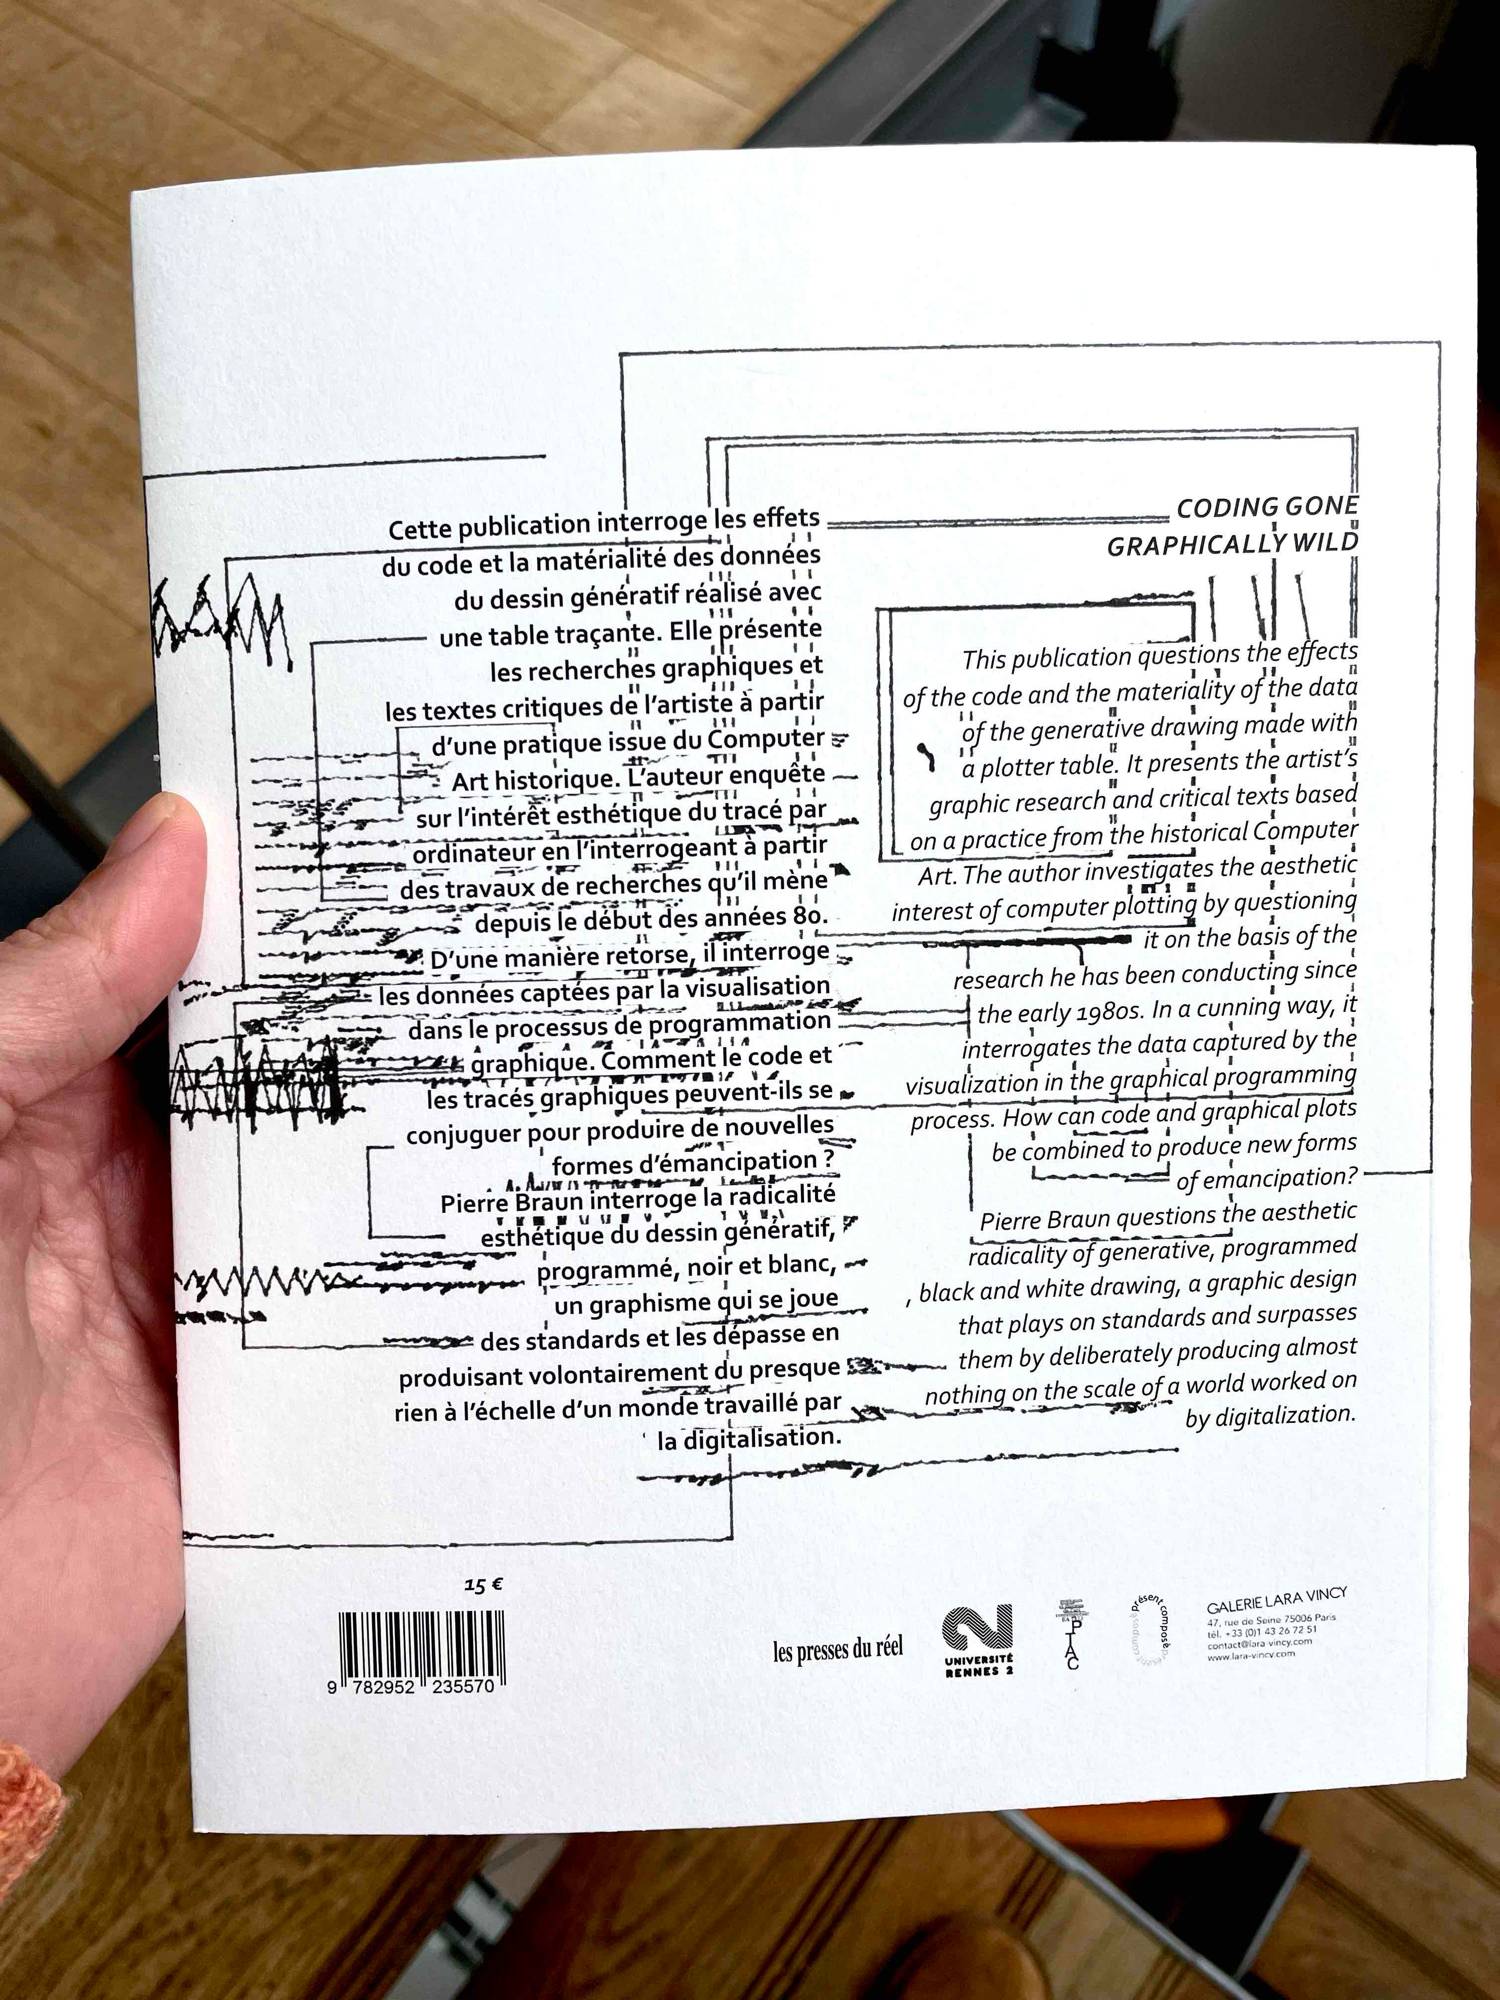 Cette publication interroge les effets
du code et la matérialité des données
du dessin génératif réalisé avec
une table traçante. Elle présente
les recherches graphiques et
les textes critiques de l'artiste à partir
d'une pratique issue du Computer
Art historique. L'auteur enquête
sur l'intérêt esthétique du tracé par
ordinateur en l'interrogeant à partir
des travaux de recherches qu'il mène
depuis le début des années 80.
D'une manière retorse, il interroge
les données captées par la visualisation
dans le processus de programmation
graphique. Comment le code et
les tracés graphiques peuvent-ils se
conjuguer pour produire de nouvelles
formes d'émancipation ?
Pierre Braun interroge la radicalité
esthétique du dessin génératif,
programmé, noir et blanc,
un graphisme qui se joue
des standards et les dépasse en
produisant volontairement du presque
rien à l'échelle d'un monde travaillé par
la digitalisation.
CODING GONE
GRAPHICALLY WILD
This publication questions the effects
of the code and the materiality of the data
of the generative drawing made with
a plotter table. It presents the artist's
graphic research and critical texts based
on a practice from the historical Computer
Art. The author investigates the aesthetic
interest of computer plotting by questioning
it on the basis of the
research he has been conducting since
the early 1980s. In a cunning way, it
interrogates the data captured by the
visualization in the graphical programming
process. How can code and graphical plots
be combined to produce new forms
of emancipation?
Pierre Braun questions the aesthetic
radicality of generative, programmed
, black and white drawing, a graphic design
that plays on standards and surpasses
them by deliberately producing almost
nothing on the scale of a world worked on
by digitalization.
15 €
9 782952 235570
les presses du réel
UNIVERSITÉ
RENNES 2
PTAC
présent composé
GALERIE LARA VINCY
47, rue de Seine 75006 Paris
tél. +33 (0)1 43 26 72 51
contact@lara-vincy.com
www.lara-vincy.com